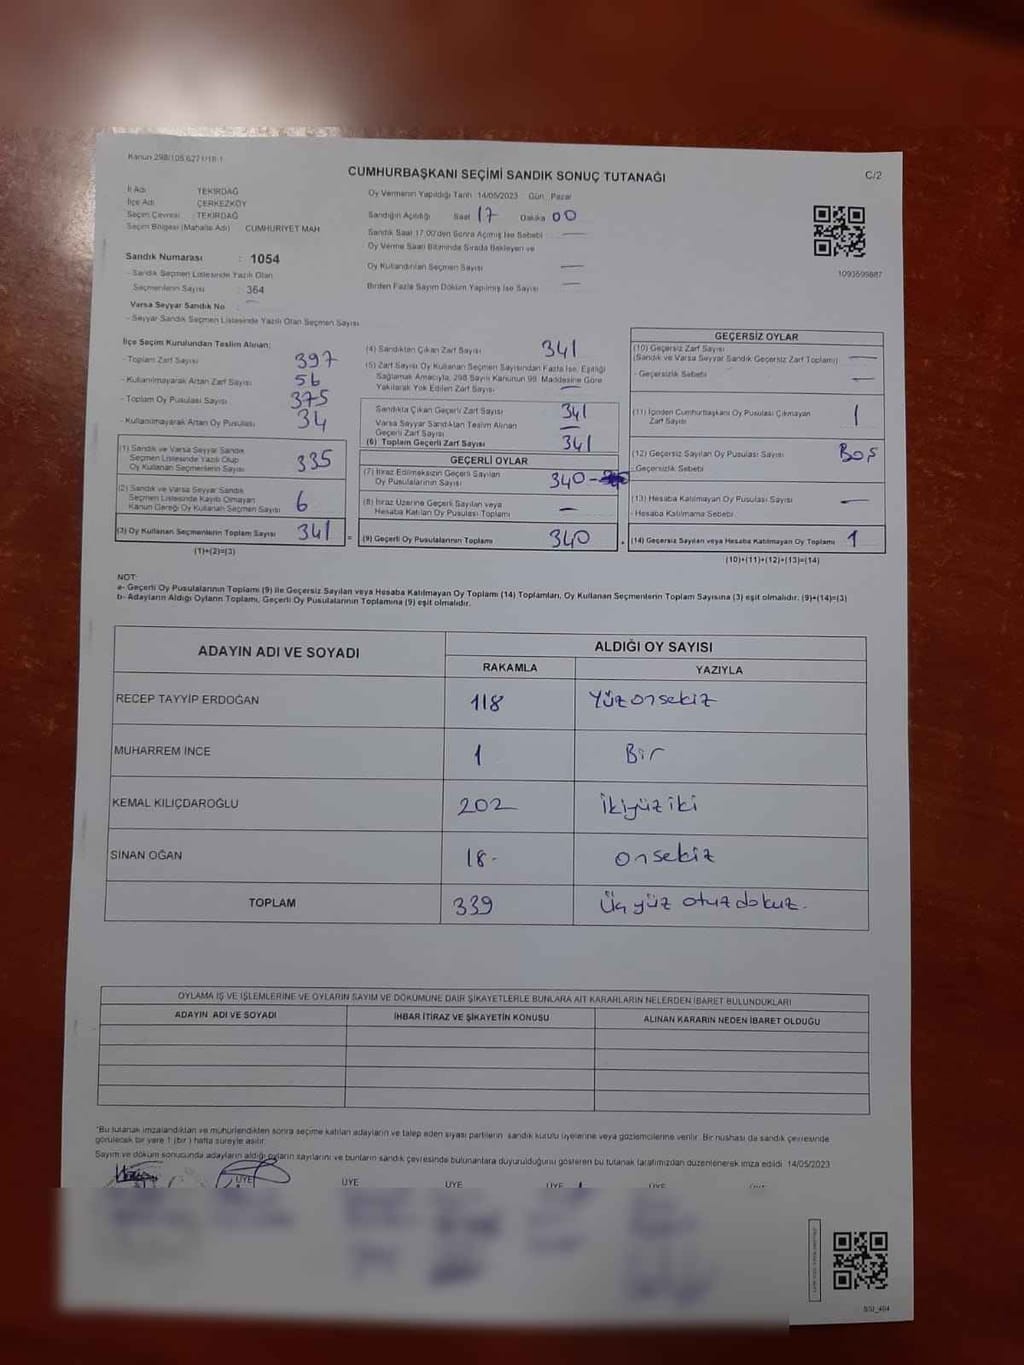 Kanun 298/105,6271/18-1
CUMHURBAŞKANI SEÇİMİ SANDIK SONUÇ TUTANAĞI
C/2
İl Adı TEKİRDAĞ
İlçe Adı ÇERKEZKÖY
Seçim Çevresi : TEKİRDAĞ
Seçim Bölgesi (Mahalle Adı) CUMHURİYET MAH
Oy Vermenin Yapıldığı Tarih 14/05/2023 Gün Pazar
Sandığın Açıldığı Saat 17 Dakika 00
Sandık Saat 17:00'den Sonra Açılmış İse Sebebi —
Oy Verme Saati Bitiminde Sırada Bekleyen ve
Oy Kullandırılan Seçmen Sayısı —
Birden Fazla Sayım Döküm Yapılmış İse Sayısı —
1093599887
Sandık Numarası : 1054
- Sandık Seçmen Listesinde Yazılı Olan
Seçmenlerin Sayısı : 364
Varsa Seyyar Sandık No : —
- Seyyar Sandık Seçmen Listesinde Yazılı Olan Seçmen Sayısı
İlçe Seçim Kurulundan Teslim Alınan:
- Toplam Zarf Sayısı 397
- Kullanılmayarak Artan Zarf Sayısı 56
- Toplam Oy Pusulası Sayısı 375
- Kullanılmayarak Artan Oy Pusulası 34
(1) Sandık ve Varsa Seyyar Sandık
Seçmen Listesinde Yazılı Olup
Oy Kullanan Seçmenlerin Sayısı 335
(2) Sandık ve Varsa Seyyar Sandık
Seçmen Listesinde Kayıtlı Olmayan
Kanun Gereği Oy Kullanan Seçmen Sayısı 6
(3) Oy Kullanan Seçmenlerin Toplam Sayısı 341
(1)+(2)=(3)
(4) Sandıktan Çıkan Zarf Sayısı 341
(5) Zarf Sayısı Oy Kullanan Seçmen Sayısından Fazla İse, Eşitliği
Sağlamak Amacıyla, 298 Sayılı Kanunun 98. Maddesine Göre
Yakılarak Yok Edilen Zarf Sayısı —
Sandıkta Çıkan Geçerli Zarf Sayısı 341
Varsa Seyyar Sandıktan Teslim Alınan
Geçerli Zarf Sayısı —
(6) Toplam Geçerli Zarf Sayısı 341
GEÇERLİ OYLAR
(7) İtiraz Edilmeksizin Geçerli Sayılan
Oy Pusulalarının Sayısı 340-
(8) İtiraz Üzerine Geçerli Sayılan veya
Hesaba Katılan Oy Pusulası Toplamı —
= (9) Geçerli Oy Pusulalarının Toplamı 340
GEÇERSİZ OYLAR
(10) Geçersiz Zarf Sayısı
(Sandık ve Varsa Seyyar Sandık Geçersiz Zarf Toplamı) —
- Geçersizlik Sebebi —
(11) İçinden Cumhurbaşkanı Oy Pusulası Çıkmayan
Zarf Sayısı 1
(12) Geçersiz Sayılan Oy Pusulası Sayısı Boş
- Geçersizlik Sebebi
(13) Hesaba Katılmayan Oy Pusulası Sayısı —
- Hesaba Katılmama Sebebi
+ (14) Geçersiz Sayılan veya Hesaba Katılmayan Oy Toplamı 1
(10)+(11)+(12)+(13)=(14)
NOT:
a- Geçerli Oy Pusulalarının Toplamı (9) ile Geçersiz Sayılan veya Hesaba Katılmayan Oy Toplamı (14) Toplamları, Oy Kullanan Seçmenlerin Toplam Sayısına (3) eşit olmalıdır. (9)+(14)=(3)
b- Adayların Aldığı Oyların Toplamı, Geçerli Oy Pusulalarının Toplamına (9) eşit olmalıdır.
ADAYIN ADI VE SOYADI ALDIĞI OY SAYISI
RAKAMLA YAZIYLA
RECEP TAYYİP ERDOĞAN 118 Yüzonsekiz
MUHARREM İNCE 1 Bir
KEMAL KILIÇDAROĞLU 202 İkiyüziki
SİNAN OĞAN 18- onsekiz
TOPLAM 339 Üçyüz otuzdokuz.
OYLAMA İŞ VE İŞLEMLERİNE VE OYLARIN SAYIM VE DÖKÜMÜNE DAİR ŞİKAYETLERLE BUNLARA AİT KARARLARIN NELERDEN İBARET BULUNDUKLARI
ADAYIN ADI VE SOYADI İHBAR İTİRAZ VE ŞİKAYETİN KONUSU ALINAN KARARIN NEDEN İBARET OLDUĞU
*Bu tutanak imzalandıktan ve mühürlendikten sonra seçime katılan adayların ve talep eden siyasi partilerin sandık kurulu üyelerine veya gözlemcilerine verilir. Bir nüshası da sandık çevresinde
görülecek bir yere 1 (bir) hafta süreyle asılır.
Sayım ve döküm sonucunda adayların aldığı oyların sayılarını ve bunların sandık çevresinde bulunanlara duyurulduğunu gösteren bu tutanak tarafımızdan düzenlenerek imza edildi. 14/05/2023
ÜYE ÜYE ÜYE ÜYE ÜYE
BSI_464